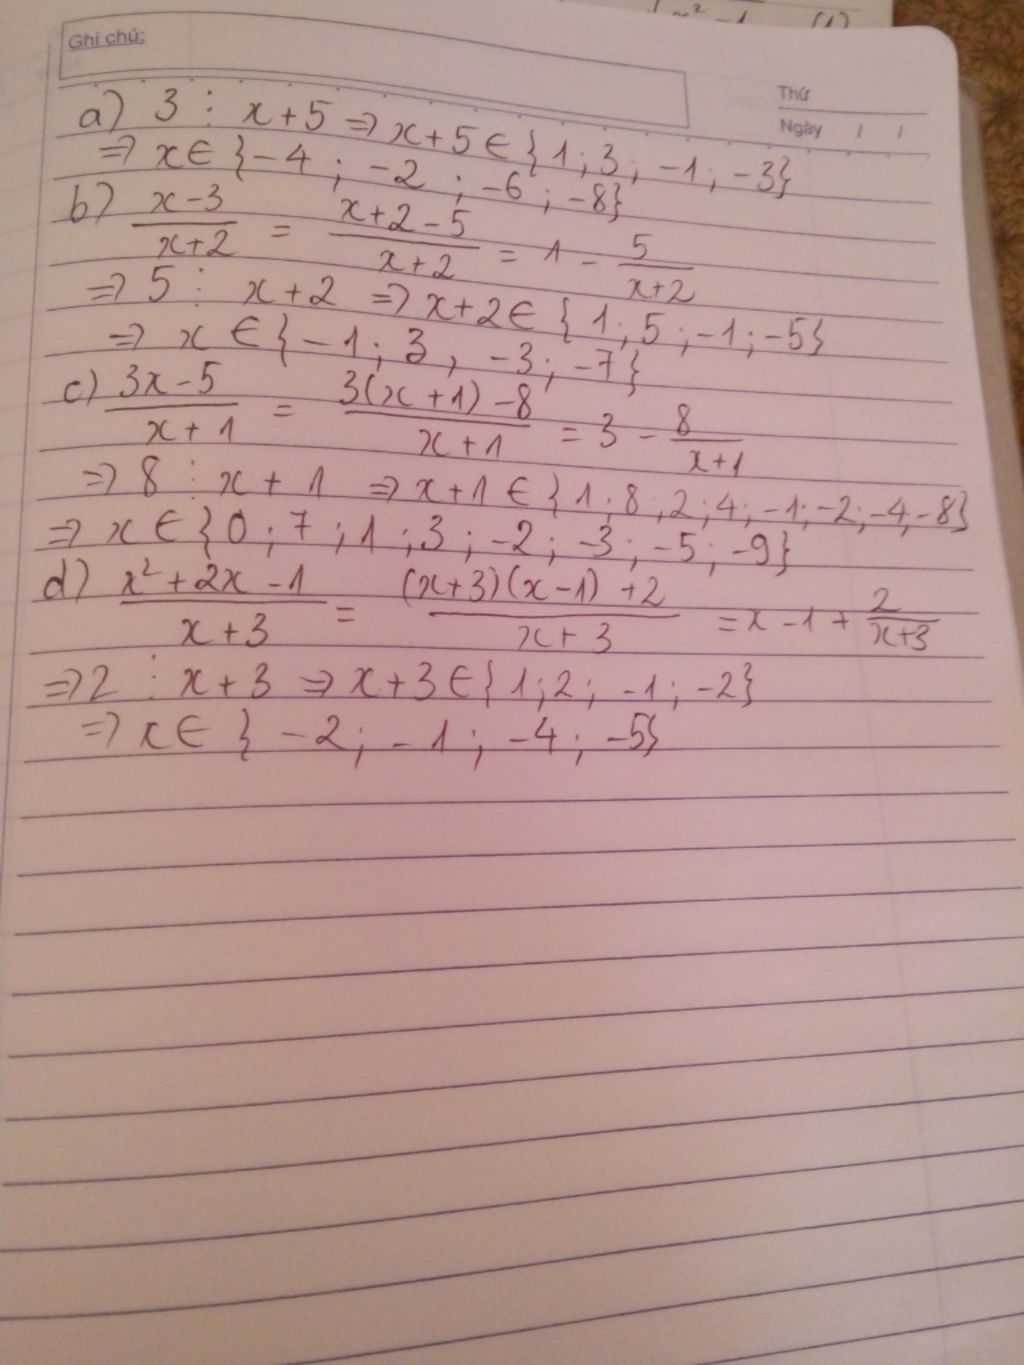 x² - 1 (1)
Ghi chú:
Thứ
Ngày / /
a) 3 ⋮ x+5 => x+5 ∈ {1; 3; -1; -3}
=> x ∈ {-4; -2; -6; -8}
b) (x-3)/(x+2) = (x+2-5)/(x+2) = 1 - 5/(x+2)
=> 5 ⋮ x+2 => x+2 ∈ {1; 5; -1; -5}
=> x ∈ {-1; 3, -3; -7}
c) (3x-5)/(x+1) = (3(x+1)-8)/(x+1) = 3 - 8/(x+1)
=> 8 ⋮ x+1 => x+1 ∈ {1; 8; 2; 4; -1; -2; -4; -8}
=> x ∈ {0; 7; 1; 3; -2; -3; -5; -9}
d) (x²+2x-1)/(x+3) = ((x+3)(x-1)+2)/(x+3) = x-1+2/(x+3)
=> 2 ⋮ x+3 => x+3 ∈ {1; 2; -1; -2}
=> x ∈ {-2; -1; -4; -5}